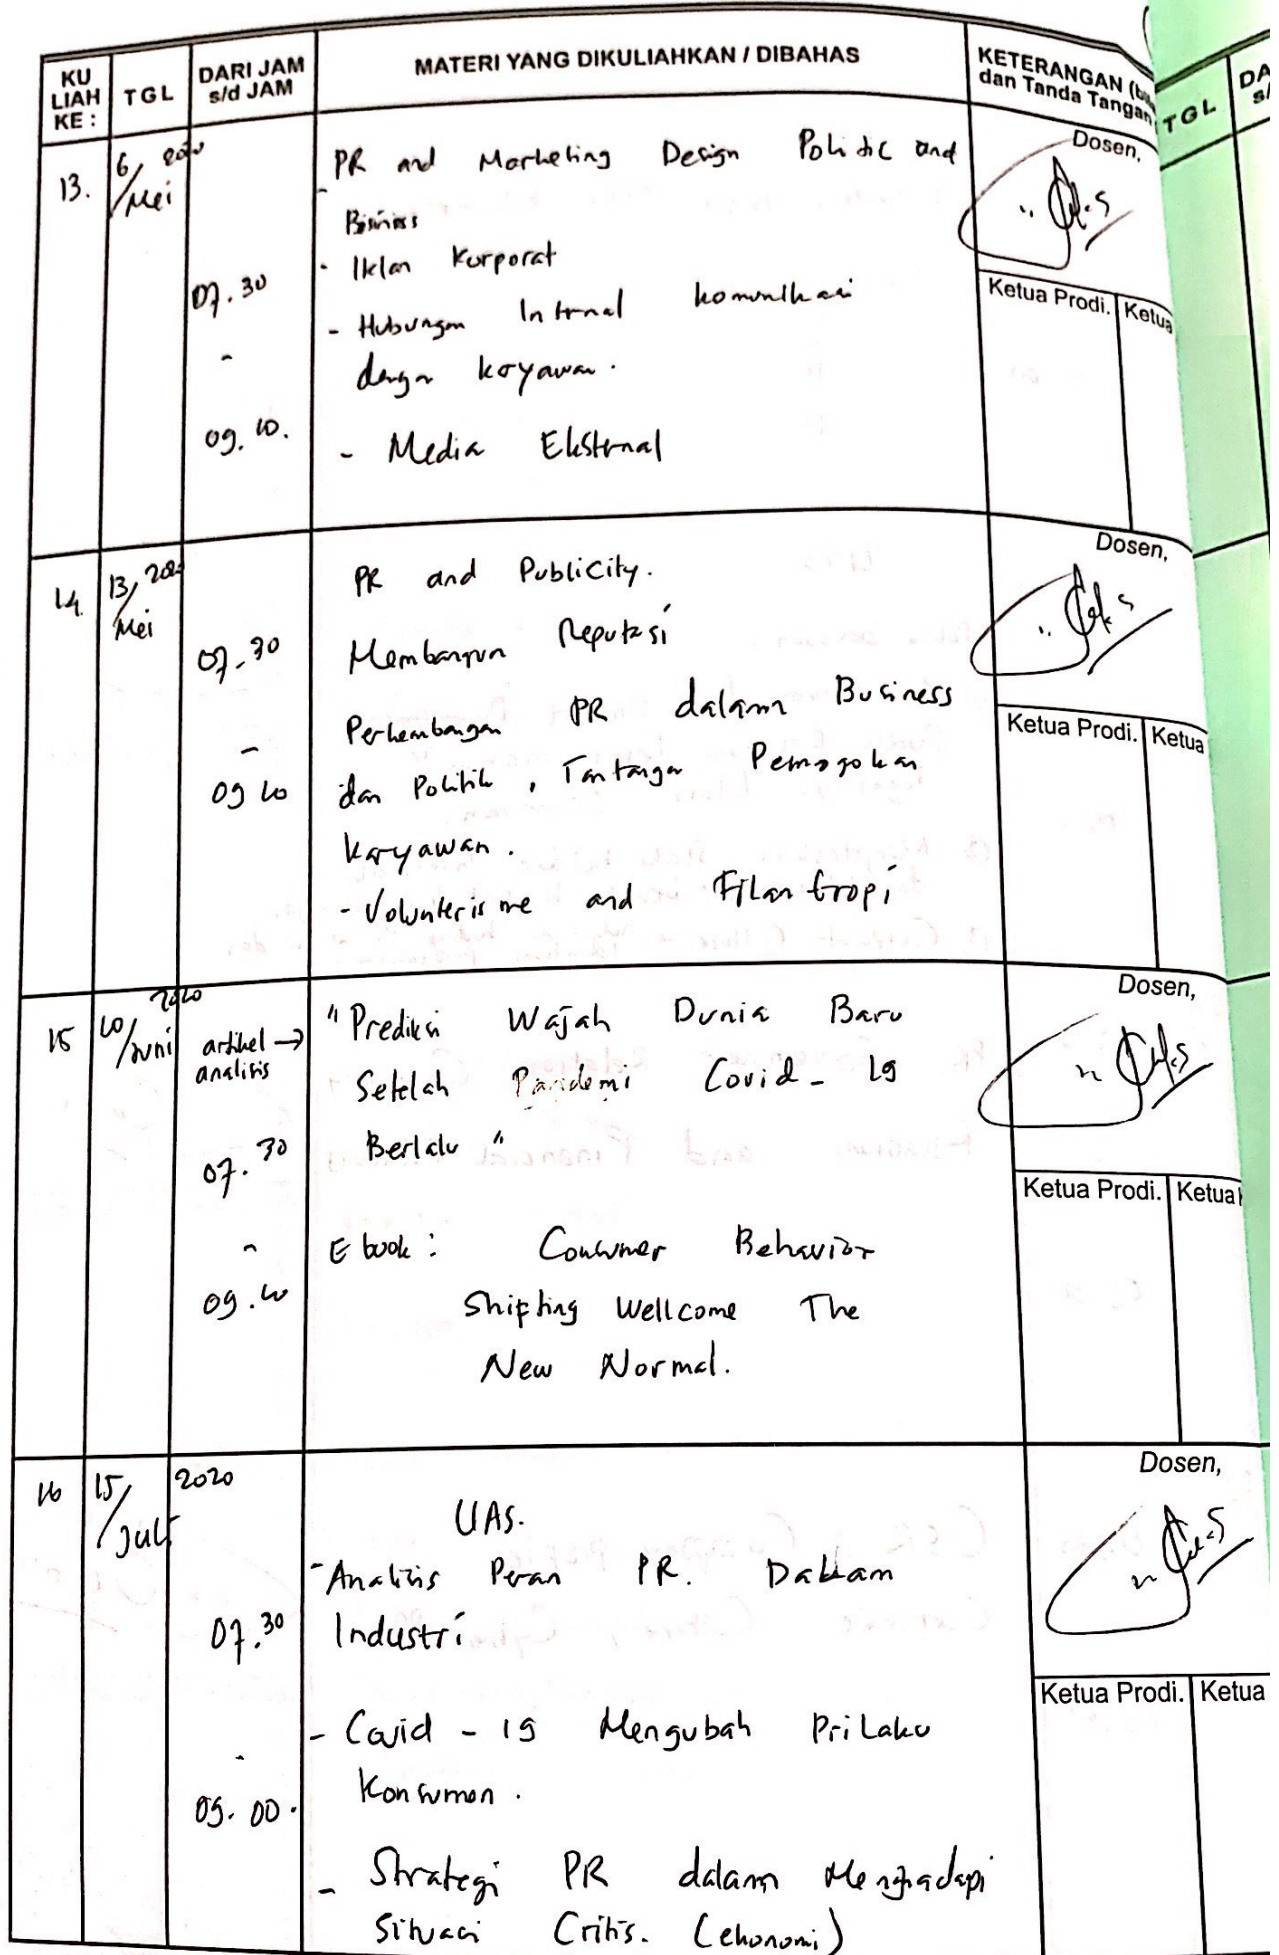 KU LIAH KE :
TGL
DARI JAM s/d JAM
MATERI YANG DIKULIAHKAN / DIBAHAS
KETERANGAN
dan Tanda Tangan
TGL
DA
s/
13.
6/ 2020
Mei
07.30
-
09.10.
PR and Marketing Design Politic and
Bisiniss
- Iklan Korporat
- Hubungan Internal komunikasi
dengan karyawan.
- Media Eksternal
Dosen,
Ketua Prodi.
Ketua
14
13/ 2020
Mei
07.30
-
09 10
PR and Publicity.
Membangun Reputasi
Perkembangan PR dalam Business
dan Politik, Tantangan Pemogokan
Karyawan.
- Volunterisme and Filantropi
Dosen,
Ketua Prodi.
Ketua
15
10/ 2020
Juni
artikel →
analisis
07.30
-
09.10
"Prediksi Wajah Dunia Baru
Setelah Pandemi Covid-19
Berlalu"
E book : Consumer Behavior
Shifting Wellcome The
New Normal.
Dosen,
Ketua Prodi.
Ketua
16
15/ 2020
Juli
07.30
-
09.00.
UAS.
- Analisis Peran PR. Dalam
Industri
- Covid-19 Mengubah Prilaku
Konsumen.
- Strategi PR dalam Menghadapi
Situasi Critis. (ekonomi)
Dosen,
Ketua Prodi.
Ketua